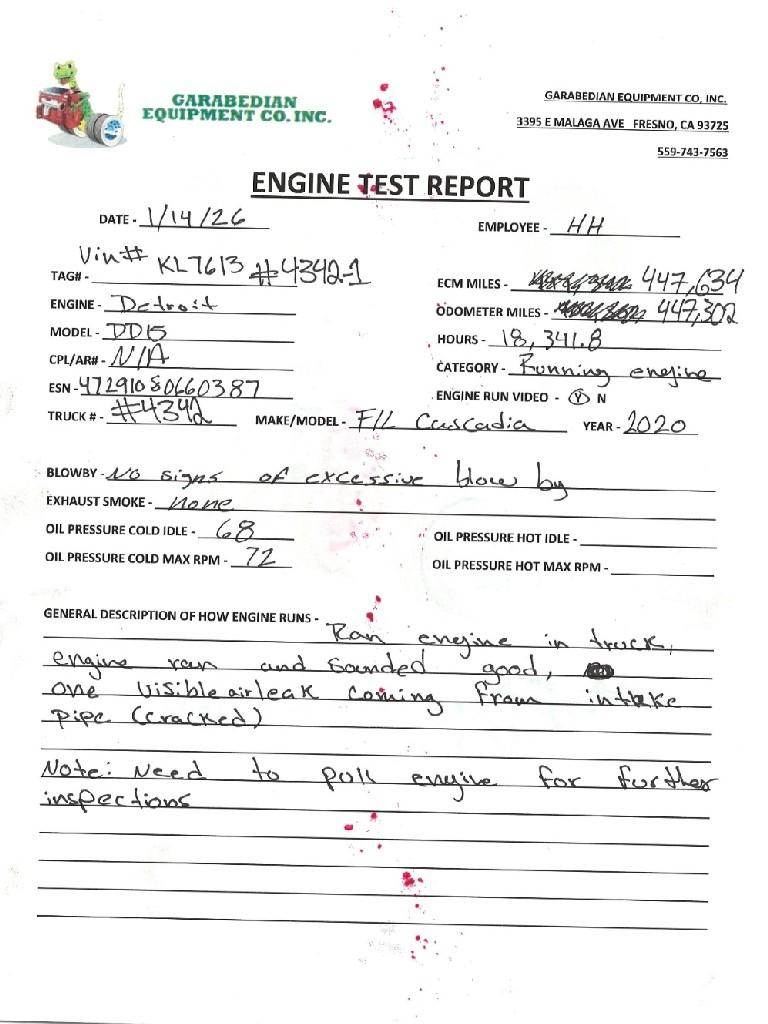 GARABEDIAN
EQUIPMENT CO. INC.
GARABEDIAN EQUIPMENT CO, INC.
3395 E MALAGA AVE FRESNO, CA 93725
559-743-7563
ENGINE TEST REPORT
DATE - 1/14/26
EMPLOYEE - HH
TAG# - Vin# KL7613 #4342-1
ECM MILES - 447,634
ENGINE - Detroit
ODOMETER MILES - 447,302
MODEL - DD15
HOURS - 18,341.8
CPL/AR# - N/A
CATEGORY - Running engine
ESN - 472910S0660387
ENGINE RUN VIDEO - Y N
TRUCK # - #4342
MAKE/MODEL - F/L Cascadia
YEAR - 2020
BLOWBY - No signs of excessive blow by
EXHAUST SMOKE - none
OIL PRESSURE COLD IDLE - 68
OIL PRESSURE HOT IDLE -
OIL PRESSURE COLD MAX RPM - 72
OIL PRESSURE HOT MAX RPM -
GENERAL DESCRIPTION OF HOW ENGINE RUNS -
Ran engine in truck,
engine ran and sounded good,
one visible air leak coming from intake
pipe (cracked)
Note: Need to pull engine for further
inspections